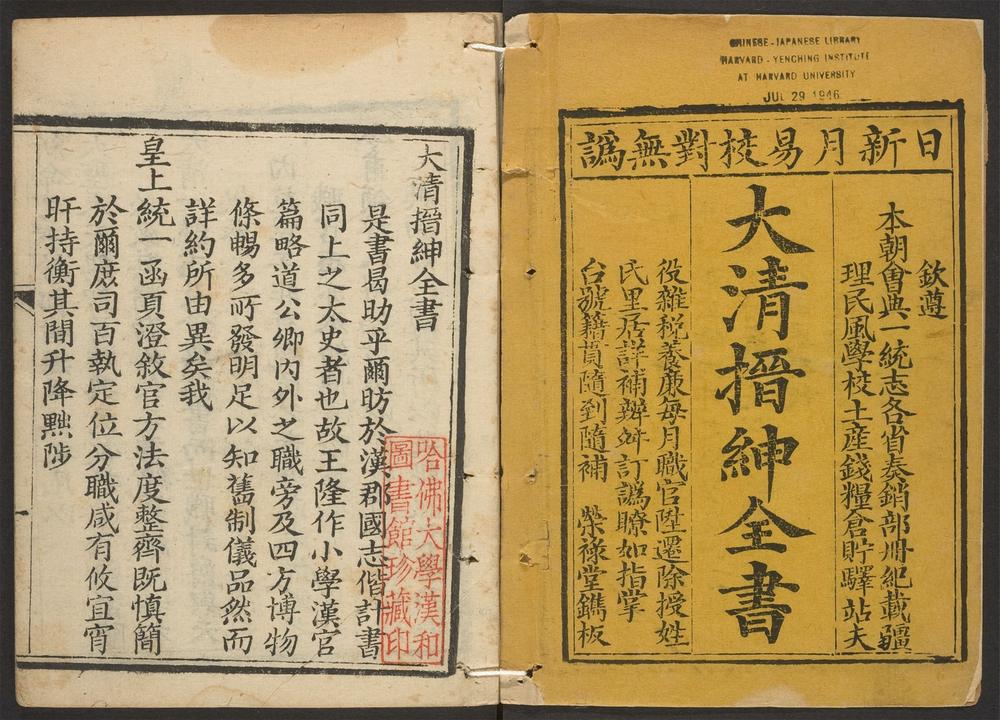 CHINESE-JAPANESE LIBRARY
HARVARD-YENCHING INSTITUTE
AT HARVARD UNIVERSITY
JUL 29 1946
日新月易校對無譌
欽遵
本朝會典一統志各省奏銷部冊紀載疆
理民風學校土產錢糧倉貯驛站夫
大清搢紳全書
役雜稅養廉每月職官陞遷除授姓
氏里居詳補辨舛訂譌瞭如指掌
台號籍貫隨到隨補 榮祿堂鐫板
大清搢紳全書
是書曷助乎爾昉於漢郡國志偕計書
同上之太史者也故王隆作小學漢官
篇略道公卿內外之職旁及四方博物
條暢多所發明足以知舊制儀品然而
詳約所由異矣我
皇上統一函夏澄敘官方法度整齊既慎簡
於爾庶司百執定位分職咸有攸宜宵
旰持衡其間升降黜陟
哈佛大學漢和
圖書館珍藏印